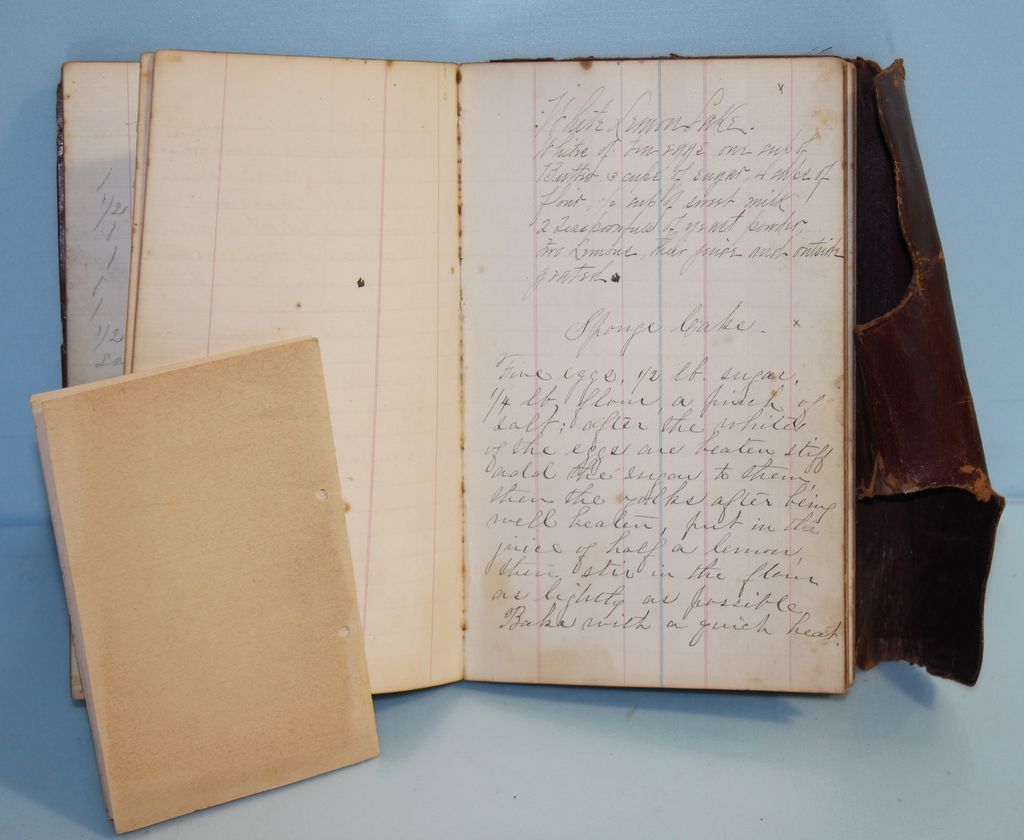 1
1/2
1
1
1
1
1/2
White Lemon Cake.
White of ten eggs one cup of
Butter 3 cups of sugar, 4 cubes of
flour, 1/2 cup of sweet milk
2 Teaspoonfuls of yeast powder,
two Lemons, their juice and outside
grated.
Sponge Cake.
Five eggs, 1/2 lb. sugar,
1/4 lb flour, a pinch of
salt; after the whites
of the eggs are beaten stiff
add the sugar to them,
then the yolks after being
well beaten, put in the
juice of half a lemon,
then stir in the flour
as lightly as possible,
Bake with a quick heat.